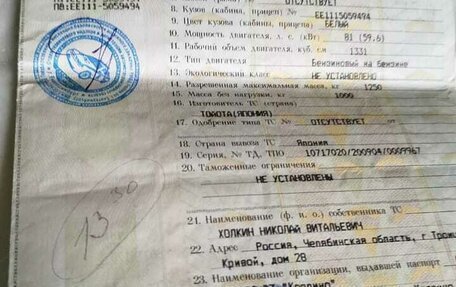 ПВ:EE111-5059494
ОТСУТСТВУЕТ
8. Кузов (кабина, прицеп) № EE1115059494
9. Цвет кузова (кабины, прицепа) БЕЛЫЙ
10. Мощность двигателя, л. с. (кВт) 81 (59.6)
11. Рабочий объем двигателя, куб. см 1331
12. Тип двигателя Бензиновый на бензине
13. Экологический класс НЕ УСТАНОВЛЕНО
14. Разрешенная максимальная масса, кг 1250
15. Масса без нагрузки, кг 1000
16. Изготовитель ТС (страна)
ТОЙОТА(ЯПОНИЯ)
17. Одобрение типа ТС № ОТСУТСТВУЕТ от
18. Страна вывоза ТС Япония
19. Серия, № ТД, ТПО 10717020/200904/0009967
20. Таможенные ограничения
НЕ УСТАНОВЛЕНЫ
21. Наименование (ф. и. о.) собственника ТС
ХОЛКИН НИКОЛАЙ ВИТАЛЬЕВИЧ
22. Адрес Россия, Челябинская область, г Троиц
Кривой, дом 28
23. Наименование организации, выдавшей паспорт
13 30